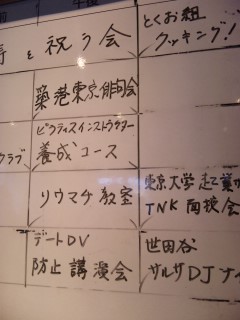 を祝う会
とくお組
クッキング!
築港東京俳句会
ピラティスインストラクター
養成コース
クラブ
リウマチ教室
東京大学
TNK面接会
デートDV
防止講演会
世田谷
サルサDJナイ